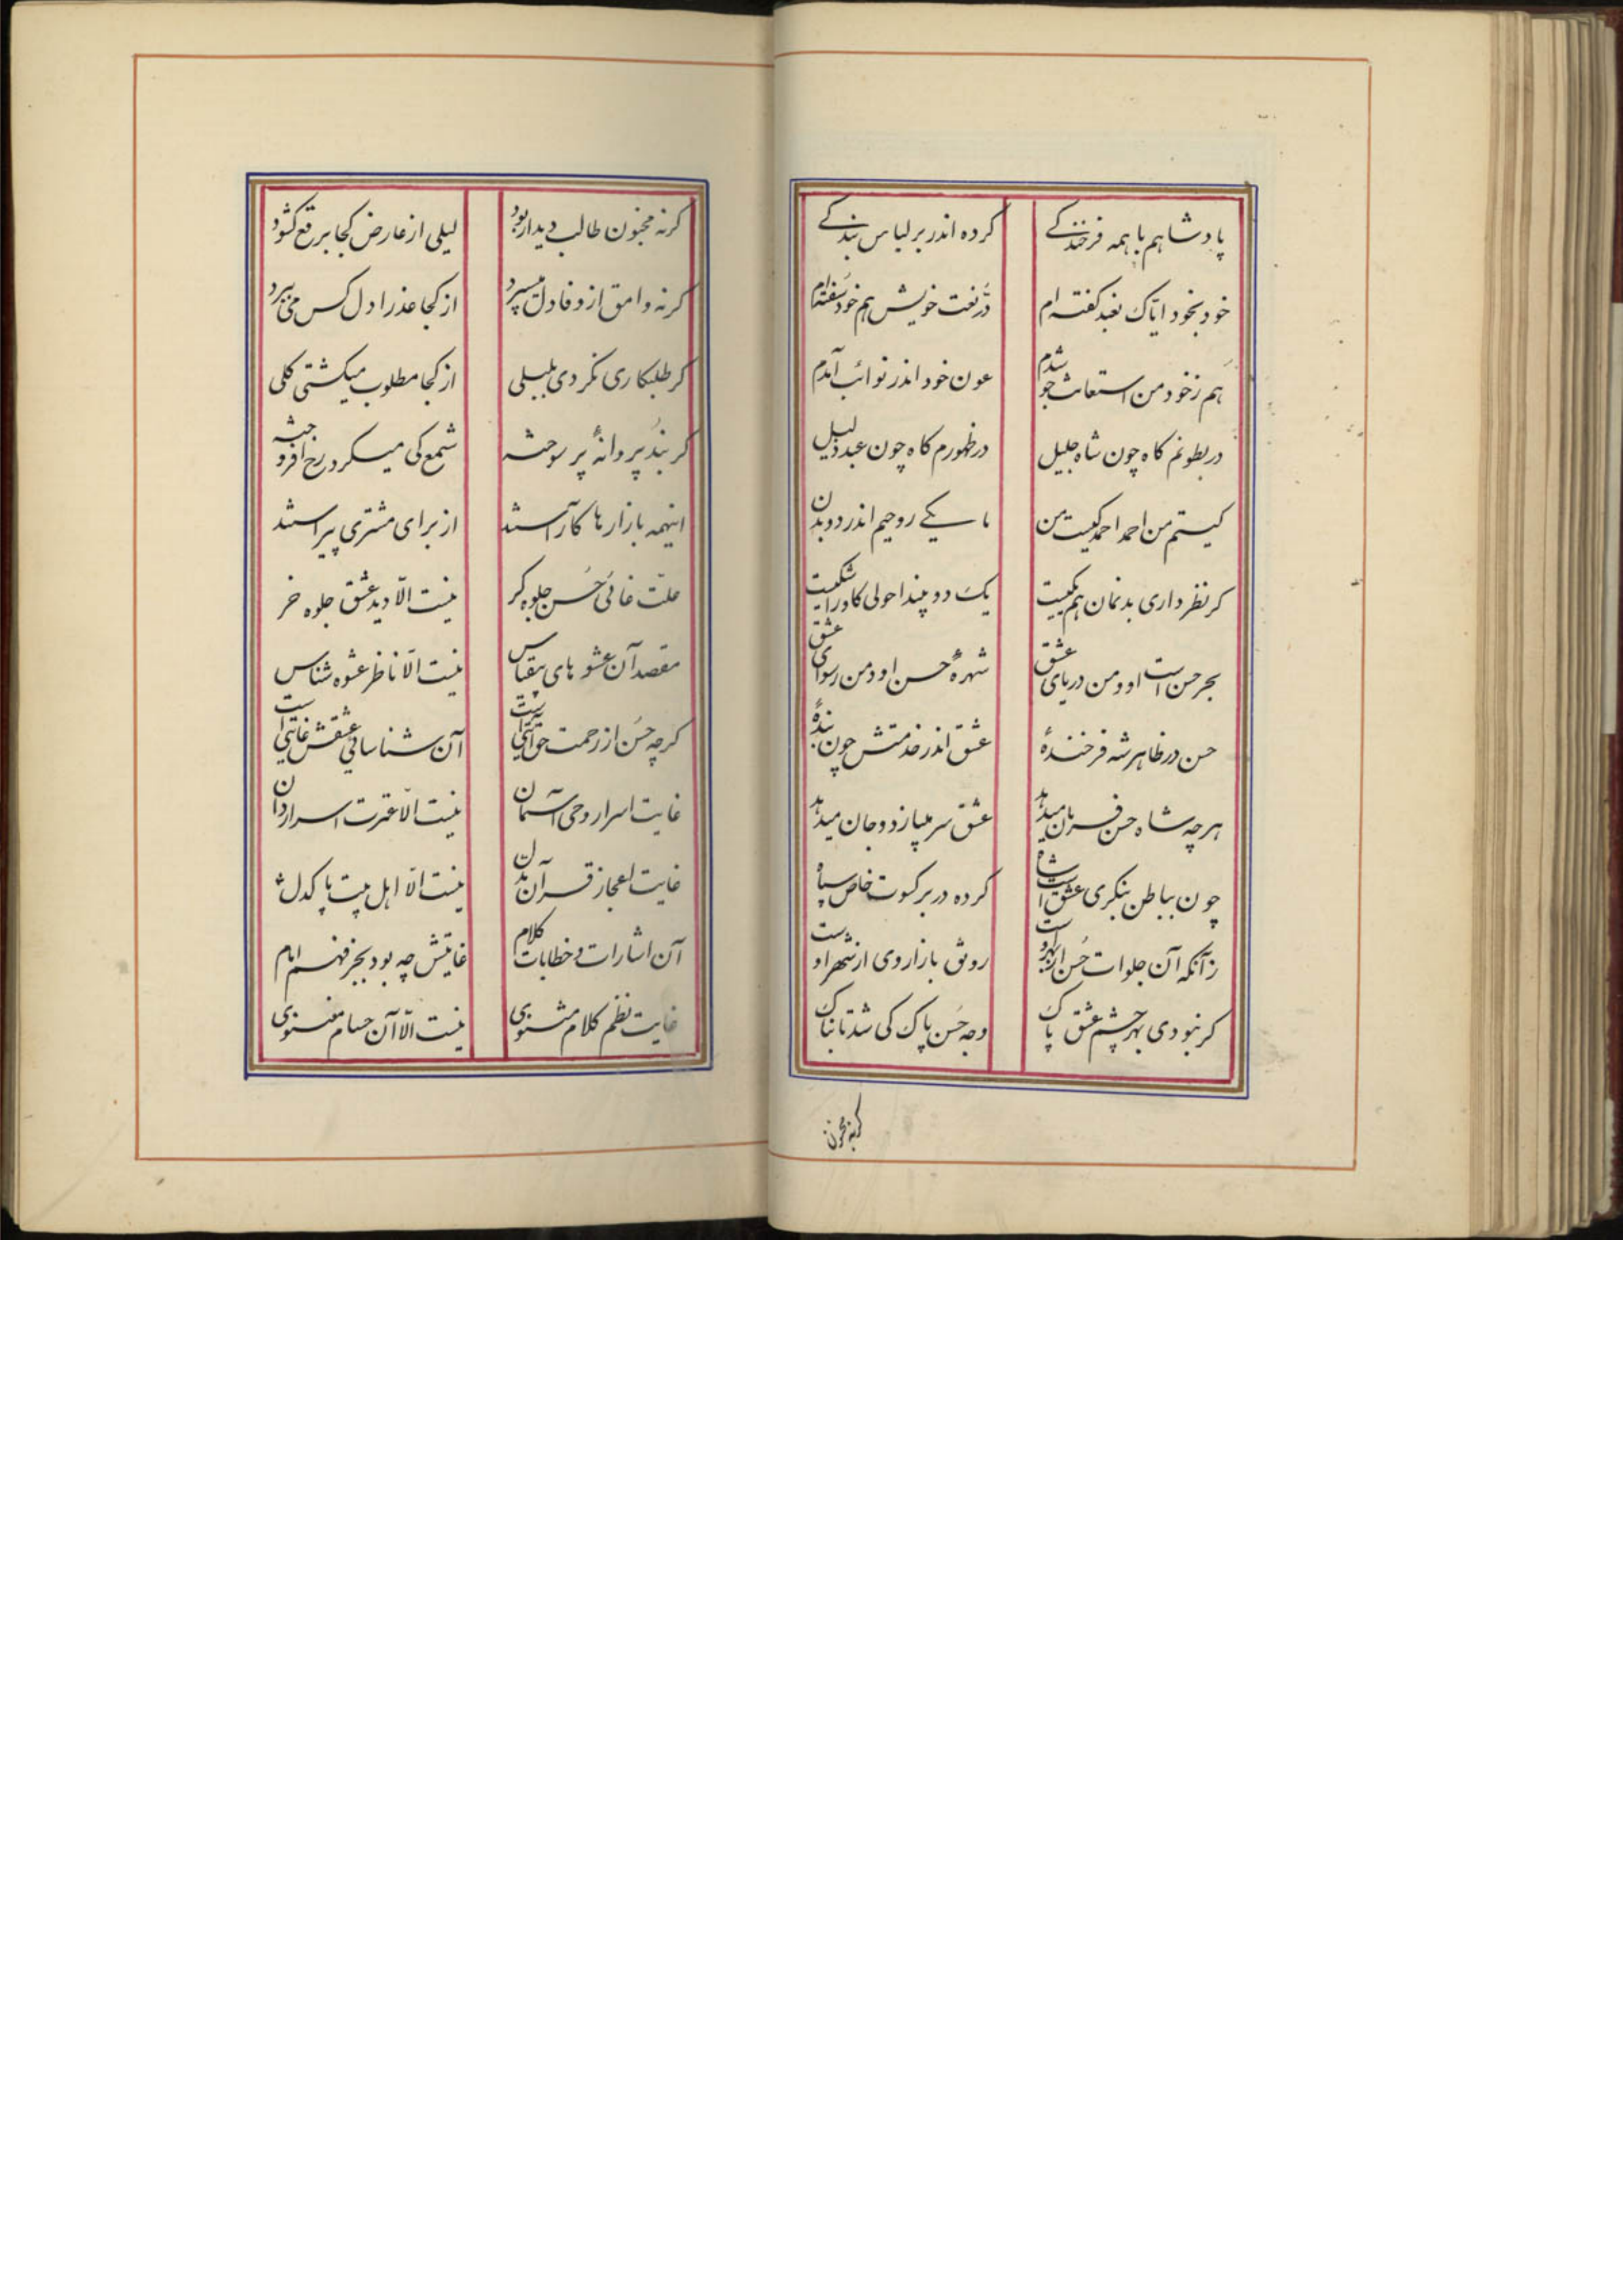 پادشاهم با همه فرخندکے کرده اندر بر لباس بندکے
خود بخود ایّاک نعبد کفته ام دُرّ نعت خویش هم خود سُفته ام
هم ز خود من استعانت جو شدم عون خود اندر نوائب آمدم
در بطونم کاه چون شاه جلیل در ظهورم کاه چون عبد ذلیل
کیستم من احمد احمد کیست من ما یکے روحیم اندر دو بدن
کر نظر داری بدنمان هم یکیست یک دو بیند احولی کاو را شکیست
بحر حسن است او و من دریای عشق شهرهٔ حسن او و من رسوای عشق
حسن در ظاهر شه فرخندهٔ عشق اندر خدمتش چون بندهٔ
هر چه شاه حسن فرمان میدهد عشق سر میبازد و جان میدهد
چون بباطن بنکری عشق است شاه کرده در بر کسوت خاص سپاه
زآنکه آن جلوات حُسن از بهر اوست رونق بازار وی از شهر اوست
کر نبودی بهر چشم عشق پاک وجه حُسن پاک کی شد تابناک
کرنه مجنون
کرنه مجنون طالب دیدار بود لیلی از عارض کجا برقع کشود
کرنه وامق از وفا دل میسپرد از کجا عذرا دل کس می ببرد
کر طلبکاری نکردی بلبلی از کجا مطلوب میکشتی کلی
کر نبد پروانهٔ پر سوخته شمع کی میکرد رخ افروخته
اینهمه بازارها کآراستند از برای مشتری پیراستند
علّت غائی حُسن جلوه کر نیست الّا دید عشق جلوه خر
مقصد آن عشوهای بیقیاس نیست الّا ناظر عشوه شناس
کرچه حسُن از رحمت حق آیتی است آن شناسائی عشقش غایتی است
غایت اسرار وحی آسمان نیست الّا عترت اسرار دان
غایت اعجاز قرآن بدان نیست الّا اهل بیت پاکدل
آن اشارات و خطابات کلام غایتش چه بود بجز فهم امام
غایت نظم کلام مثنوی نیست الّا آن حسام معنوی